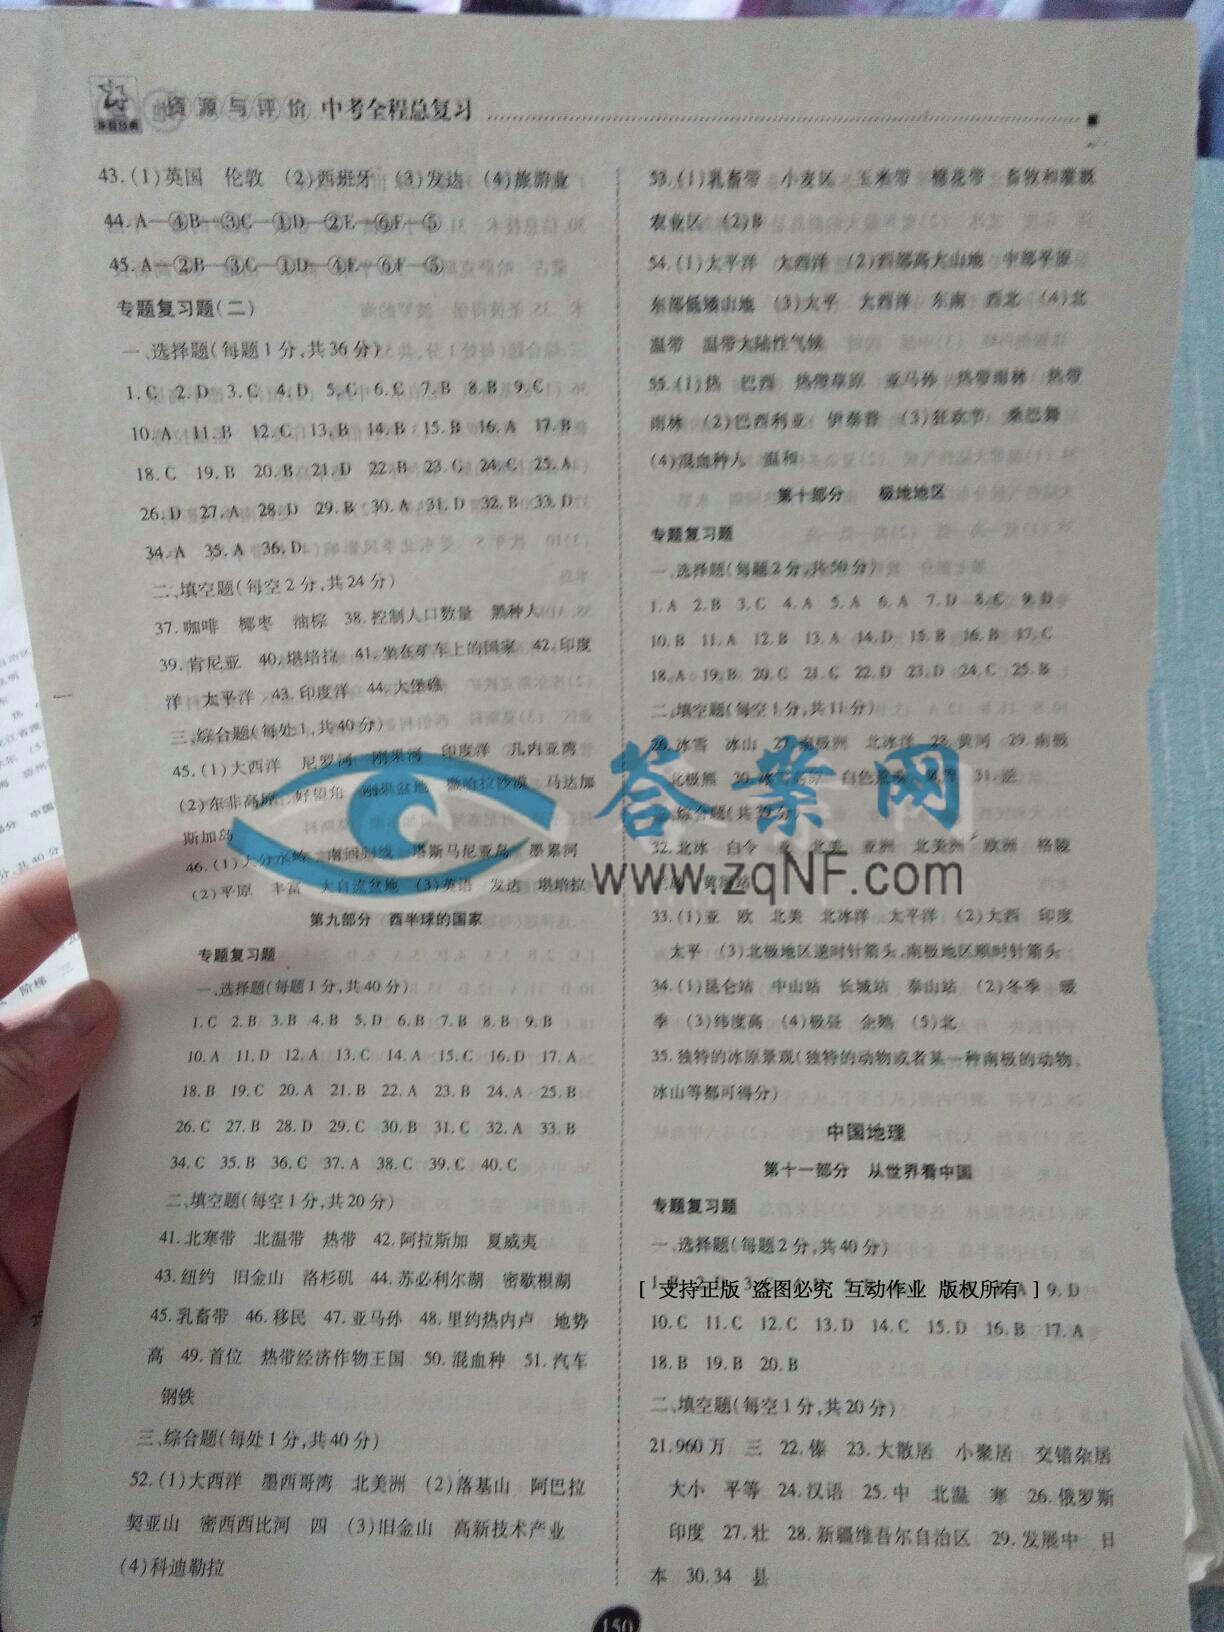 资源与评价 中考全程总复习
43.(1)英国 伦敦 (2)西班牙 (3)发达 (4)旅游业
44.A—④B—③C—①D—②E—⑥F—⑤
45.A—②B—③C—①D—④E—⑥F—⑤
专题复习题(二)
一、选择题(每题1分,共36分)
1.C 2.D 3.C 4.D 5.C 6.C 7.B 8.B 9.C
10.A 11.B 12.C 13.B 14.B 15.B 16.A 17.B
18.C 19.B 20.B 21.D 22.B 23.C 24.C 25.A
26.D 27.A 28.D 29.B 30.A 31.D 32.B 33.D
34.A 35.A 36.D
二、填空题(每空2分,共24分)
37.咖啡 椰枣 油棕 38.控制人口数量 黑种人
39.肯尼亚 40.堪培拉 41.坐在矿车上的国家 42.印度
洋 太平洋 43.印度洋 44.大堡礁
三、综合题(每处1,共40分)
45.(1)大西洋 尼罗河 刚果河 印度洋 几内亚湾
(2)东非高原 好望角 刚果盆地 撒哈拉沙漠 马达加
斯加岛
46.(1)大分水岭 南回归线 塔斯马尼亚岛 墨累河
(2)平原 丰富 大自流盆地 (3)英语 发达 堪培拉
第九部分 西半球的国家
专题复习题
一、选择题(每题1分,共40分)
1.C 2.B 3.B 4.B 5.D 6.B 7.B 8.B 9.B
10.A 11.D 12.A 13.C 14.A 15.C 16.D 17.A
18.B 19.C 20.A 21.B 22.A 23.B 24.A 25.B
26.C 27.B 28.D 29.C 30.B 31.C 32.A 33.B
34.C 35.B 36.C 37.A 38.C 39.C 40.C
二、填空题(每空1分,共20分)
41.北寒带 北温带 热带 42.阿拉斯加 夏威夷
43.纽约 旧金山 洛杉矶 44.苏必利尔湖 密歇根湖
45.乳畜带 46.移民 47.亚马孙 48.里约热内卢 地势
高 49.首位 热带经济作物王国 50.混血种 51.汽车
钢铁
三、综合题(每处1分,共40分)
52.(1)大西洋 墨西哥湾 北美洲 (2)落基山 阿巴拉
契亚山 密西西比河 四 (3)旧金山 高新技术产业
(4)科迪勒拉
53.(1)乳畜带 小麦区 玉米带 棉花带 畜牧和灌溉
农业区 (2)B
54.(1)太平洋 大西洋 (2)西部高大山地 中部平原
东部低矮山地 (3)太平 大西洋 东南 西北 (4)北
温带 温带大陆性气候
55.(1)热 巴西 热带草原 亚马孙 热带雨林 热带
雨林 (2)巴西利亚 伊泰普 (3)狂欢节 桑巴舞
(4)混血种人 温和
第十部分 极地地区
专题复习题
一、选择题(每题2分,共50分)
1.A 2.B 3.C 4.A 5.A 6.A 7.D 8.C 9.B
10.B 11.A 12.B 13.A 14.D 15.B 16.B 17.C
18.A 19.B 20.C 21.C 22.D 23.D 24.C 25.B
二、填空题(每空1分,共11分)
26.冰雪 冰山 27.南极洲 北冰洋 28.黄河 29.南极
北极熊 30. 白色 31.逆
综合题(共39分)
32.北冰 白令 亚 北美 亚洲 北美洲 欧洲 格陵
33.(1)亚 欧 北美 北冰洋 太平洋 (2)大西 印度
太平 (3)北极地区逆时针箭头,南极地区顺时针箭头
34.(1)昆仑站 中山站 长城站 泰山站 (2)冬季 暖
季 (3)纬度高 (4)极昼 企鹅 (5)北
35.独特的冰原景观(独特的动物或者某一种南极的动物、
冰山等都可得分)
中国地理
第十一部分 从世界看中国
专题复习题
一、选择题(每题2分,共40分)
9.D
10.C 11.C 12.C 13.D 14.C 15.D 16.B 17.A
18.B 19.B 20.B
二、填空题(每空1分,共20分)
21.960万 三 22.傣 23.大散居 小聚居 交错杂居
大小 平等 24.汉语 25.中 北温 寒 26.俄罗斯
印度 27.壮 28.新疆维吾尔自治区 29.发展中 日
本 30.34 县
150
答案网
www.zqNF.com
[ 支持正版 盗图必究 互动作业 版权所有 ]